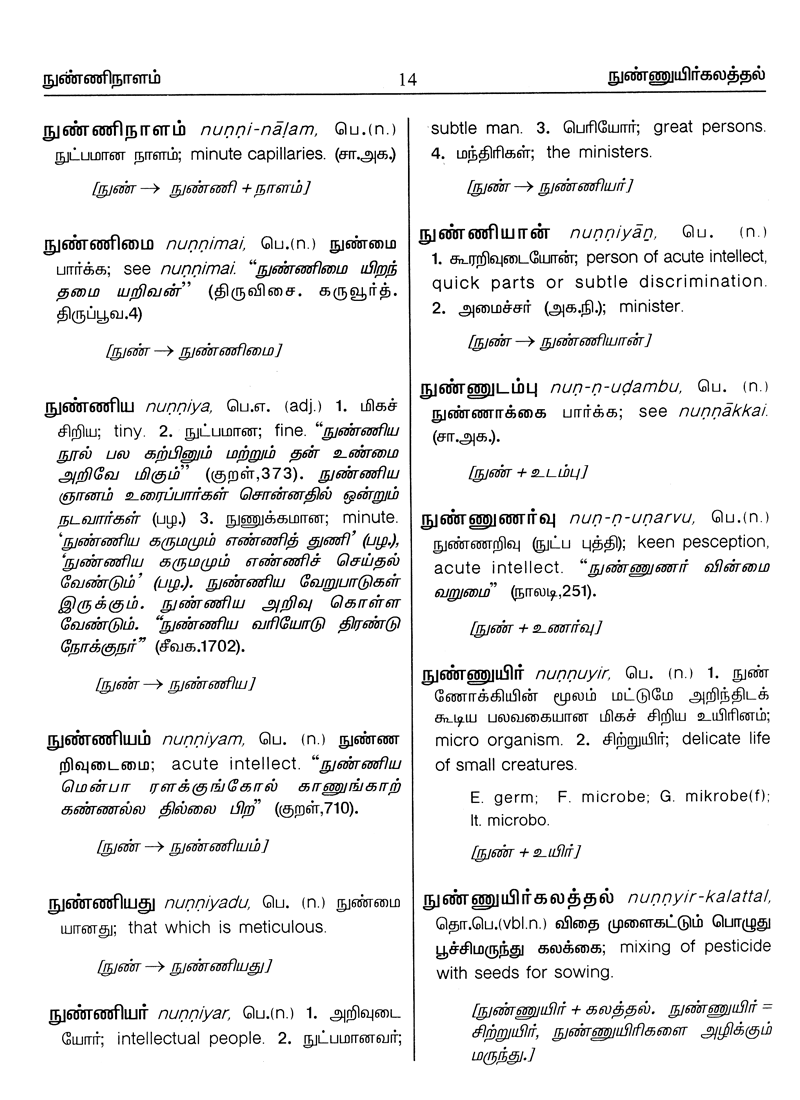 நுண்ணிநாளம் 14 நுண்ணுயிர்கலத்தல்
நுண்ணிநாளம் nuṇṇi-nāḷam, பெ.(n.)
நுட்பமான நாளம்; minute capillaries. (சா.அக.)
[நுண் → நுண்ணி + நாளம்]
நுண்ணிமை nuṇṇimai, பெ.(n.) நுண்மை
பார்க்க; see nuṇṇimai. “நுண்ணிமை யிறந்
தமை யறிவன்’’ (திருவிசை. கருவூர்த்.
திருப்பூவ.4)
[நுண் → நுண்ணிமை]
நுண்ணிய nuṇṇiya, பெ.எ. (adj.) 1. மிகச்
சிறிய; tiny. 2. நுட்பமான; fine. “நுண்ணிய
நூல் பல கற்பினும் மற்றும் தன் உண்மை
அறிவே மிகும்” (குறள்,373). நுண்ணிய
ஞானம் உரைப்பார்கள் சொன்னதில் ஒன்றும்
நடவார்கள் (பழ.) 3. நுணுக்கமான; minute.
‘நுண்ணிய கருமமும் எண்ணித் துணி’ (பழ.),
‘நுண்ணிய கருமமும் எண்ணிச் செய்தல்
வேண்டும்’ (பழ.). நுண்ணிய வேறுபாடுகள்
இருக்கும். நுண்ணிய அறிவு கொள்ள
வேண்டும். “நுண்ணிய வரியோடு திரண்டு
நோக்குநர்” (சீவக.1702).
[நுண் → நுண்ணிய]
நுண்ணியம் nuṇṇiyam, பெ. (n.) நுண்ண
றிவுடைமை; acute intellect. “நுண்ணிய
மென்பா ரளக்குங்கோல் காணுங்காற்
கண்ணல்ல தில்லை பிற” (குறள்,710).
[நுண் → நுண்ணியம்]
நுண்ணியது nuṇṇiyadu, பெ. (n.) நுண்மை
யானது; that which is meticulous.
[நுண் → நுண்ணியது]
நுண்ணியர் nuṇṇiyar, பெ.(n.) 1. அறிவுடை
யோர்; intellectual people. 2. நுட்பமானவர்;
subtle man. 3. பெரியோர்; great persons.
4. மந்திரிகள்; the ministers.
[நுண் → நுண்ணியர்]
நுண்ணியான் nuṇṇiyāṉ, பெ. (n.)
1. கூரறிவுடையோன்; person of acute intellect,
quick parts or subtle discrimination.
2. அமைச்சர் (அக.நி.); minister.
[நுண் → நுண்ணியான்]
நுண்ணுடம்பு nuṇ-ṇ-uḍambu, பெ. (n.)
நுண்ணாக்கை பார்க்க; see nuṇṇākkai.
(சா.அக.).
[நுண் + உடம்பு]
நுண்ணுணர்வு nuṇ-ṇ-uṇarvu, பெ.(n.)
நுண்ணறிவு (நுட்ப புத்தி); keen pesception,
acute intellect. “நுண்ணுணர் வின்மை
வறுமை” (நாலடி,251).
[நுண் + உணர்வு]
நுண்ணுயிர் nuṇṇuyir, பெ. (n.) 1. நுண்
ணோக்கியின் மூலம் மட்டுமே அறிந்திடக்
கூடிய பலவகையான மிகச் சிறிய உயிரினம்;
micro organism. 2. சிற்றுயிர்; delicate life
of small creatures.
E. germ; F. microbe; G. mikrobe(f);
It. microbo.
[நுண் + உயிர்]
நுண்ணுயிர்கலத்தல் nuṇṇyir-kalattal,
தொ.பெ.(vbl.n.) விதை முளைகட்டும் பொழுது
பூச்சிமருந்து கலக்கை; mixing of pesticide
with seeds for sowing.
[நுண்ணுயிர் + கலத்தல். நுண்ணுயிர் =
சிற்றுயிர், நுண்ணுயிரிகளை அழிக்கும்
மருந்து.]